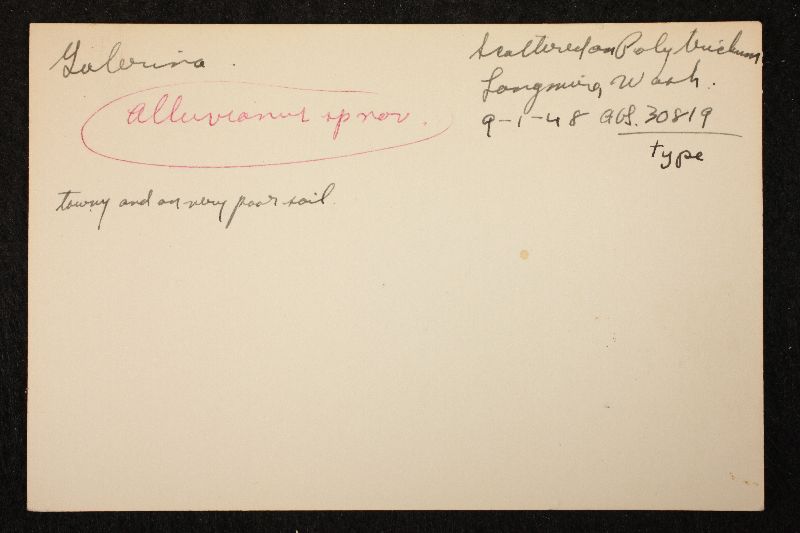 Galerina.
Scattered on Polytrichum
Longmire, Wash.
alluviana sp nov.
9-1-48 AHS. 30819
type
tawny and on very poor soil.